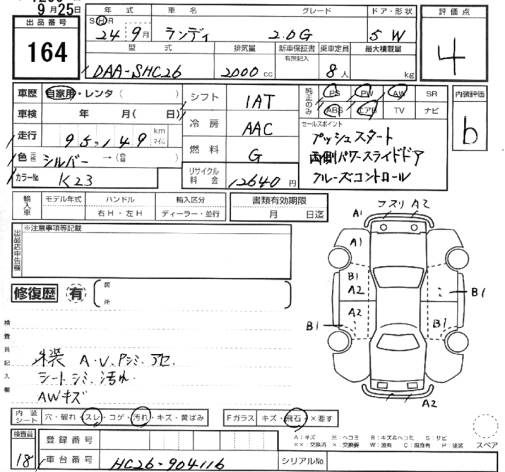 9月25日
出品番号
164
年式 車名 グレード ドア・形状
S H R 24年9月 ランディ 2.0G 5 W
評価点
4
型式 排気量 新車保証書 有無記入 乗車定員 最大積載量
DAA-SHC26 2000 cc 8人 kg
車歴 自家用・レンタ( )
車検 年 月( 日)
走行 95,149 km マイル
色 シルバー → (色 )
カラーNo K23
シフト 1AT
冷房 AAC
燃料 G
リサイクル料金 12640円
純正のみ PS PW AW SR
ABS エアB TV ナビ
内装評価
b
セールスポイント
プッシュスタート
両側パワースライドドア
クルーズコントロール
輸入車 モデル年式 ハンドル 輸入区分
右H・左H ディーラー・並行
書類有効期限
月 日迄
出品店申告欄
※注意事項等記載
修復歴 有 箇所
検査員記入欄
シートシミ、汚れ
AWキズ
フスリ A2
A1
A1
B1
A2
B1
A2
B1
A2
内装シート 穴・破れ・スレ・コゲ・汚れ・キズ・黄ばみ
Fガラス キズ・飛石・×要す
スペア
検査員
18
登録番号
車台番号 HC26-904116
シリアルNo